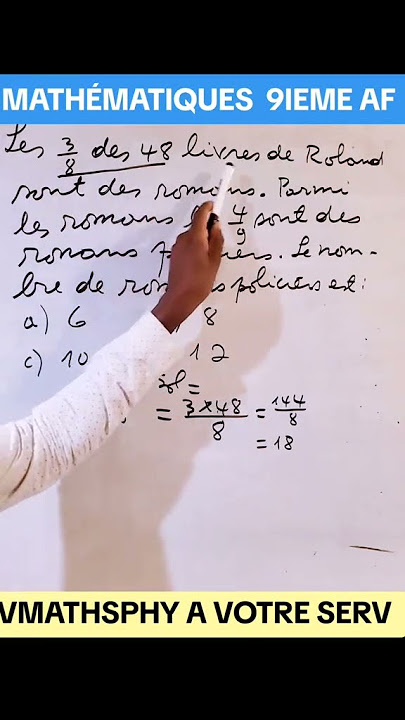 MATHÉMATIQUES 9IEME AF
Les 3/8 des 48 livres de Roland
sont des romans. Parmi
les romans 4/9 sont des
romans
Le nom-
bre de policiers est:
a) 6 8
c) 10 12
= 3×48/8 = 144/8
= 18
VMATHSPHY A VOTRE SERV